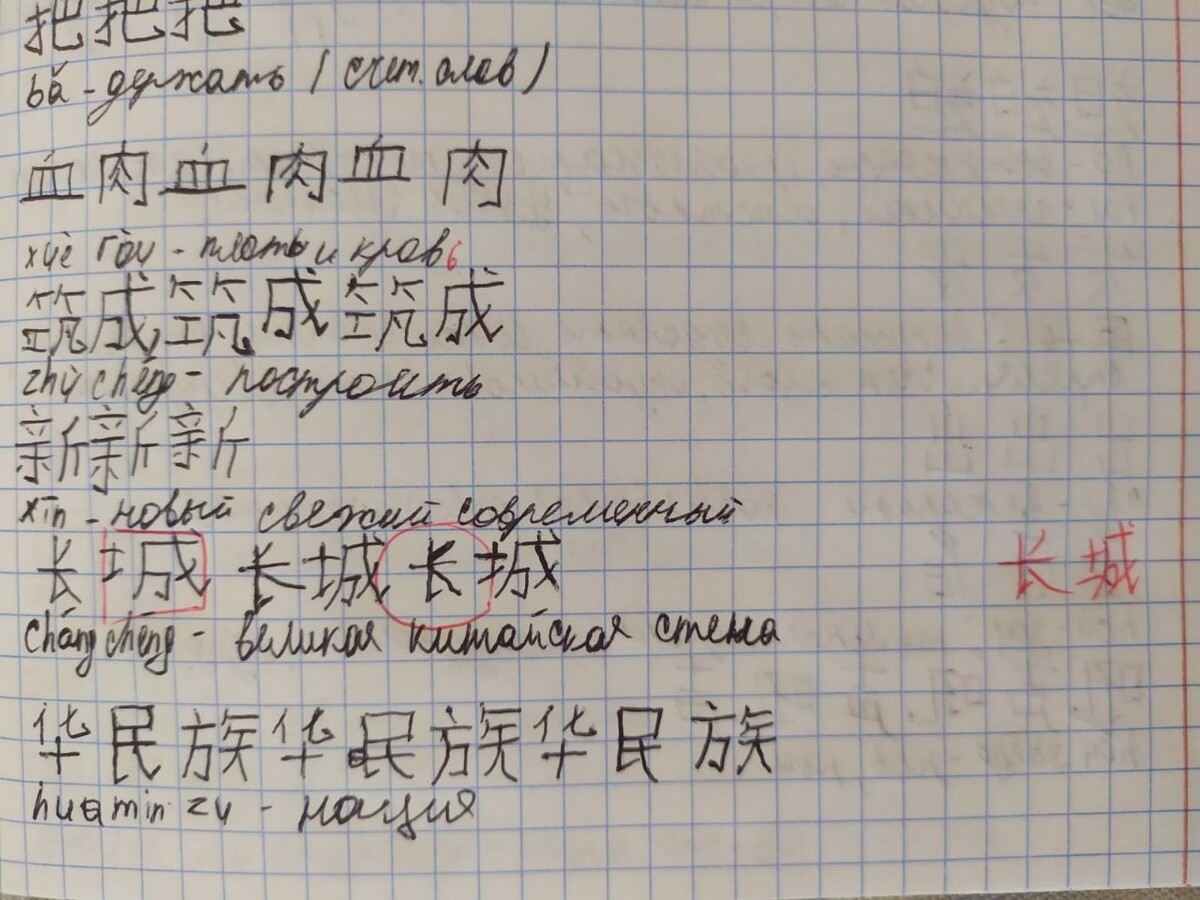 把把把
bǎ - держать (счет. слов)
血肉血肉血肉
xuè ròu - плоть и кровь
筑成筑成筑成
zhù chéng - построить
新新新
xīn - новый свежий современный
长城长城长城 长城
cháng chéng - великая китайская стена
华民族华民族华民族
hua min zu - нация